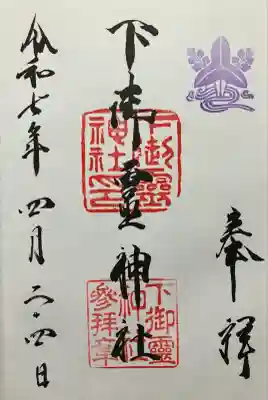 奉拝
下御靈神社
下御靈神社印
下御靈神社参拝章
令和七年四月二十四日